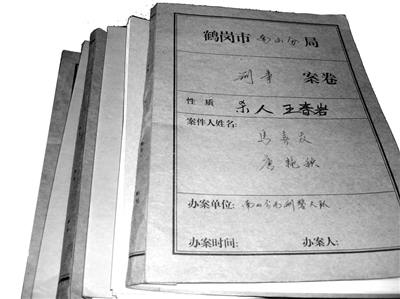 鹤岗市南山分局
刑事案卷
性质 杀人 王香岩
案件人姓名:
馬喜友
唐艳秋
办案单位:南山分局刑警大队
办案时间: 办案人: